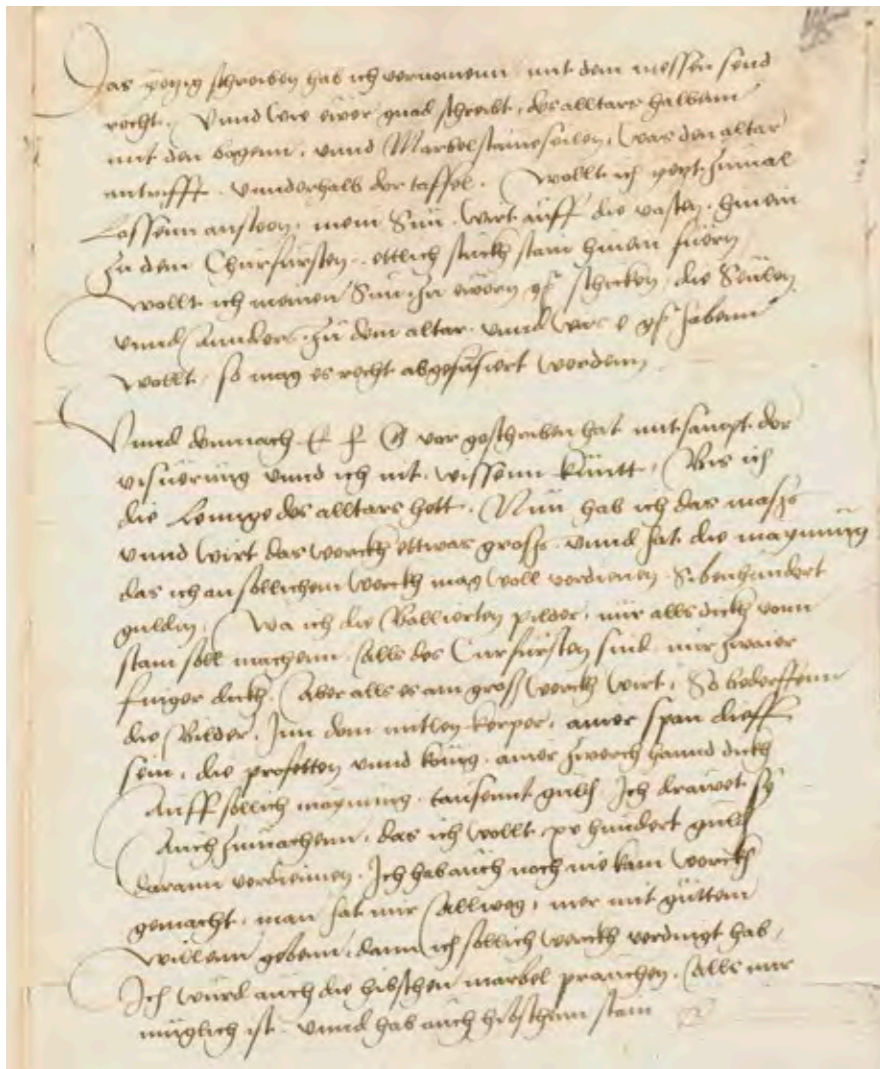 Das yetzig schreiben hab ich vernomenn mit dem messen send
recht. Vnnd wie ewer gnad schreibt, des alltars halbenn
mit den bogenn, vnnd Marbelstaineseilen, was den altar
antrifft vnnderhalb der taffel. Wollt ich yetzt zumal
Lassenn ansteen, mein Sun wirt auff die vasten hinein
zu dem Churfursten, ettlich stuckh stain hinein fuern
Wollt ich meinen Sun zu ewern gn schicken, die Seulen
vnnd annders zu dem altar vnnd was e gn habenn
Wollt, so mag es recht abgefusiert werdenn
Vnnd dennach E F G vor geschriben hat mit sampt der
visierung vnnd ich nit wissenn kundt, Bis ich
die Lennge des alltars hett. Nun hab ich das mass
vnnd wirt das werckh ettwas gross vnnd hat die maynung
das ich an sollichem werckh mag woll verdienen Sibenhundert
guldin, Wa ich die Ballierten pilder, nur alls dickh vonn
stain soll machenn Alls des Curfursten sind nur zwaier
finger dickh, Aber alls es ain gross werckh wirt, So bederffenn
die Bilder, Inn dem mitlen korper, ainer span dieff
sein, die profetten vnnd konig ainer zwerch hannd dickh
Auff sollich maynung, tausennt guld Ich drawet sy
Auch zumachenn, das ich wollt xv hundert guld
darann verdiennen, Ich hab auch noch nie kain werckh
gemacht, man hat mir Allweg, mer mit guttem
willenn gebenn, dann ich sollich werckh verdingt hab,
Ich wurd auch die hibschen marbel prauchen, Alls mir
muglich ist vnnd hab auch hibschenn stain